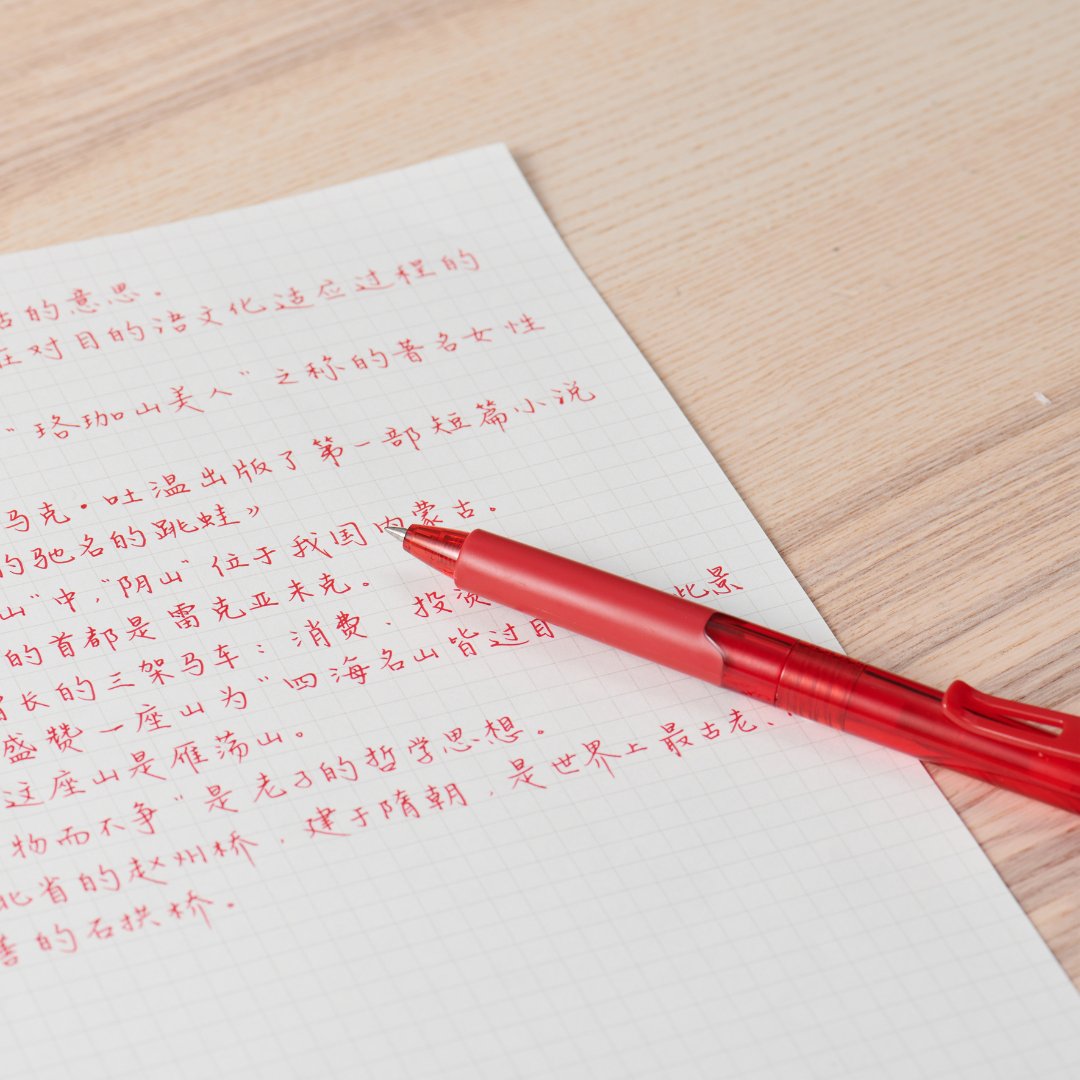 的意思.
在对目的语文化适应过程的
"珞珈山美人"之称的著名女性
马克·吐温出版了第一部短篇小说
的驰名的跳蛙》
山"中,"阴山"位于我国内蒙古.
的首都是雷克亚未克.
长的三架马车:消费、投资 此景
盛赞一座山为"四海名山皆过目
这座山是雁荡山.
物而不争"是老子的哲学思想.
北省的赵州桥,建于隋朝,是世界上最古老、
善的石拱桥.